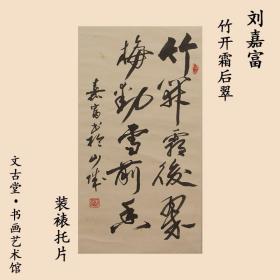 刘嘉富
竹开霜后翠
竹開霜後翠
梅動雪前香
嘉富书於山城
装裱托片
文古堂·书画艺术馆